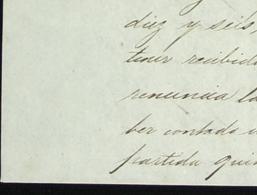 diez y seis,
tener recibida
renuncia la
ber contado
partida quin